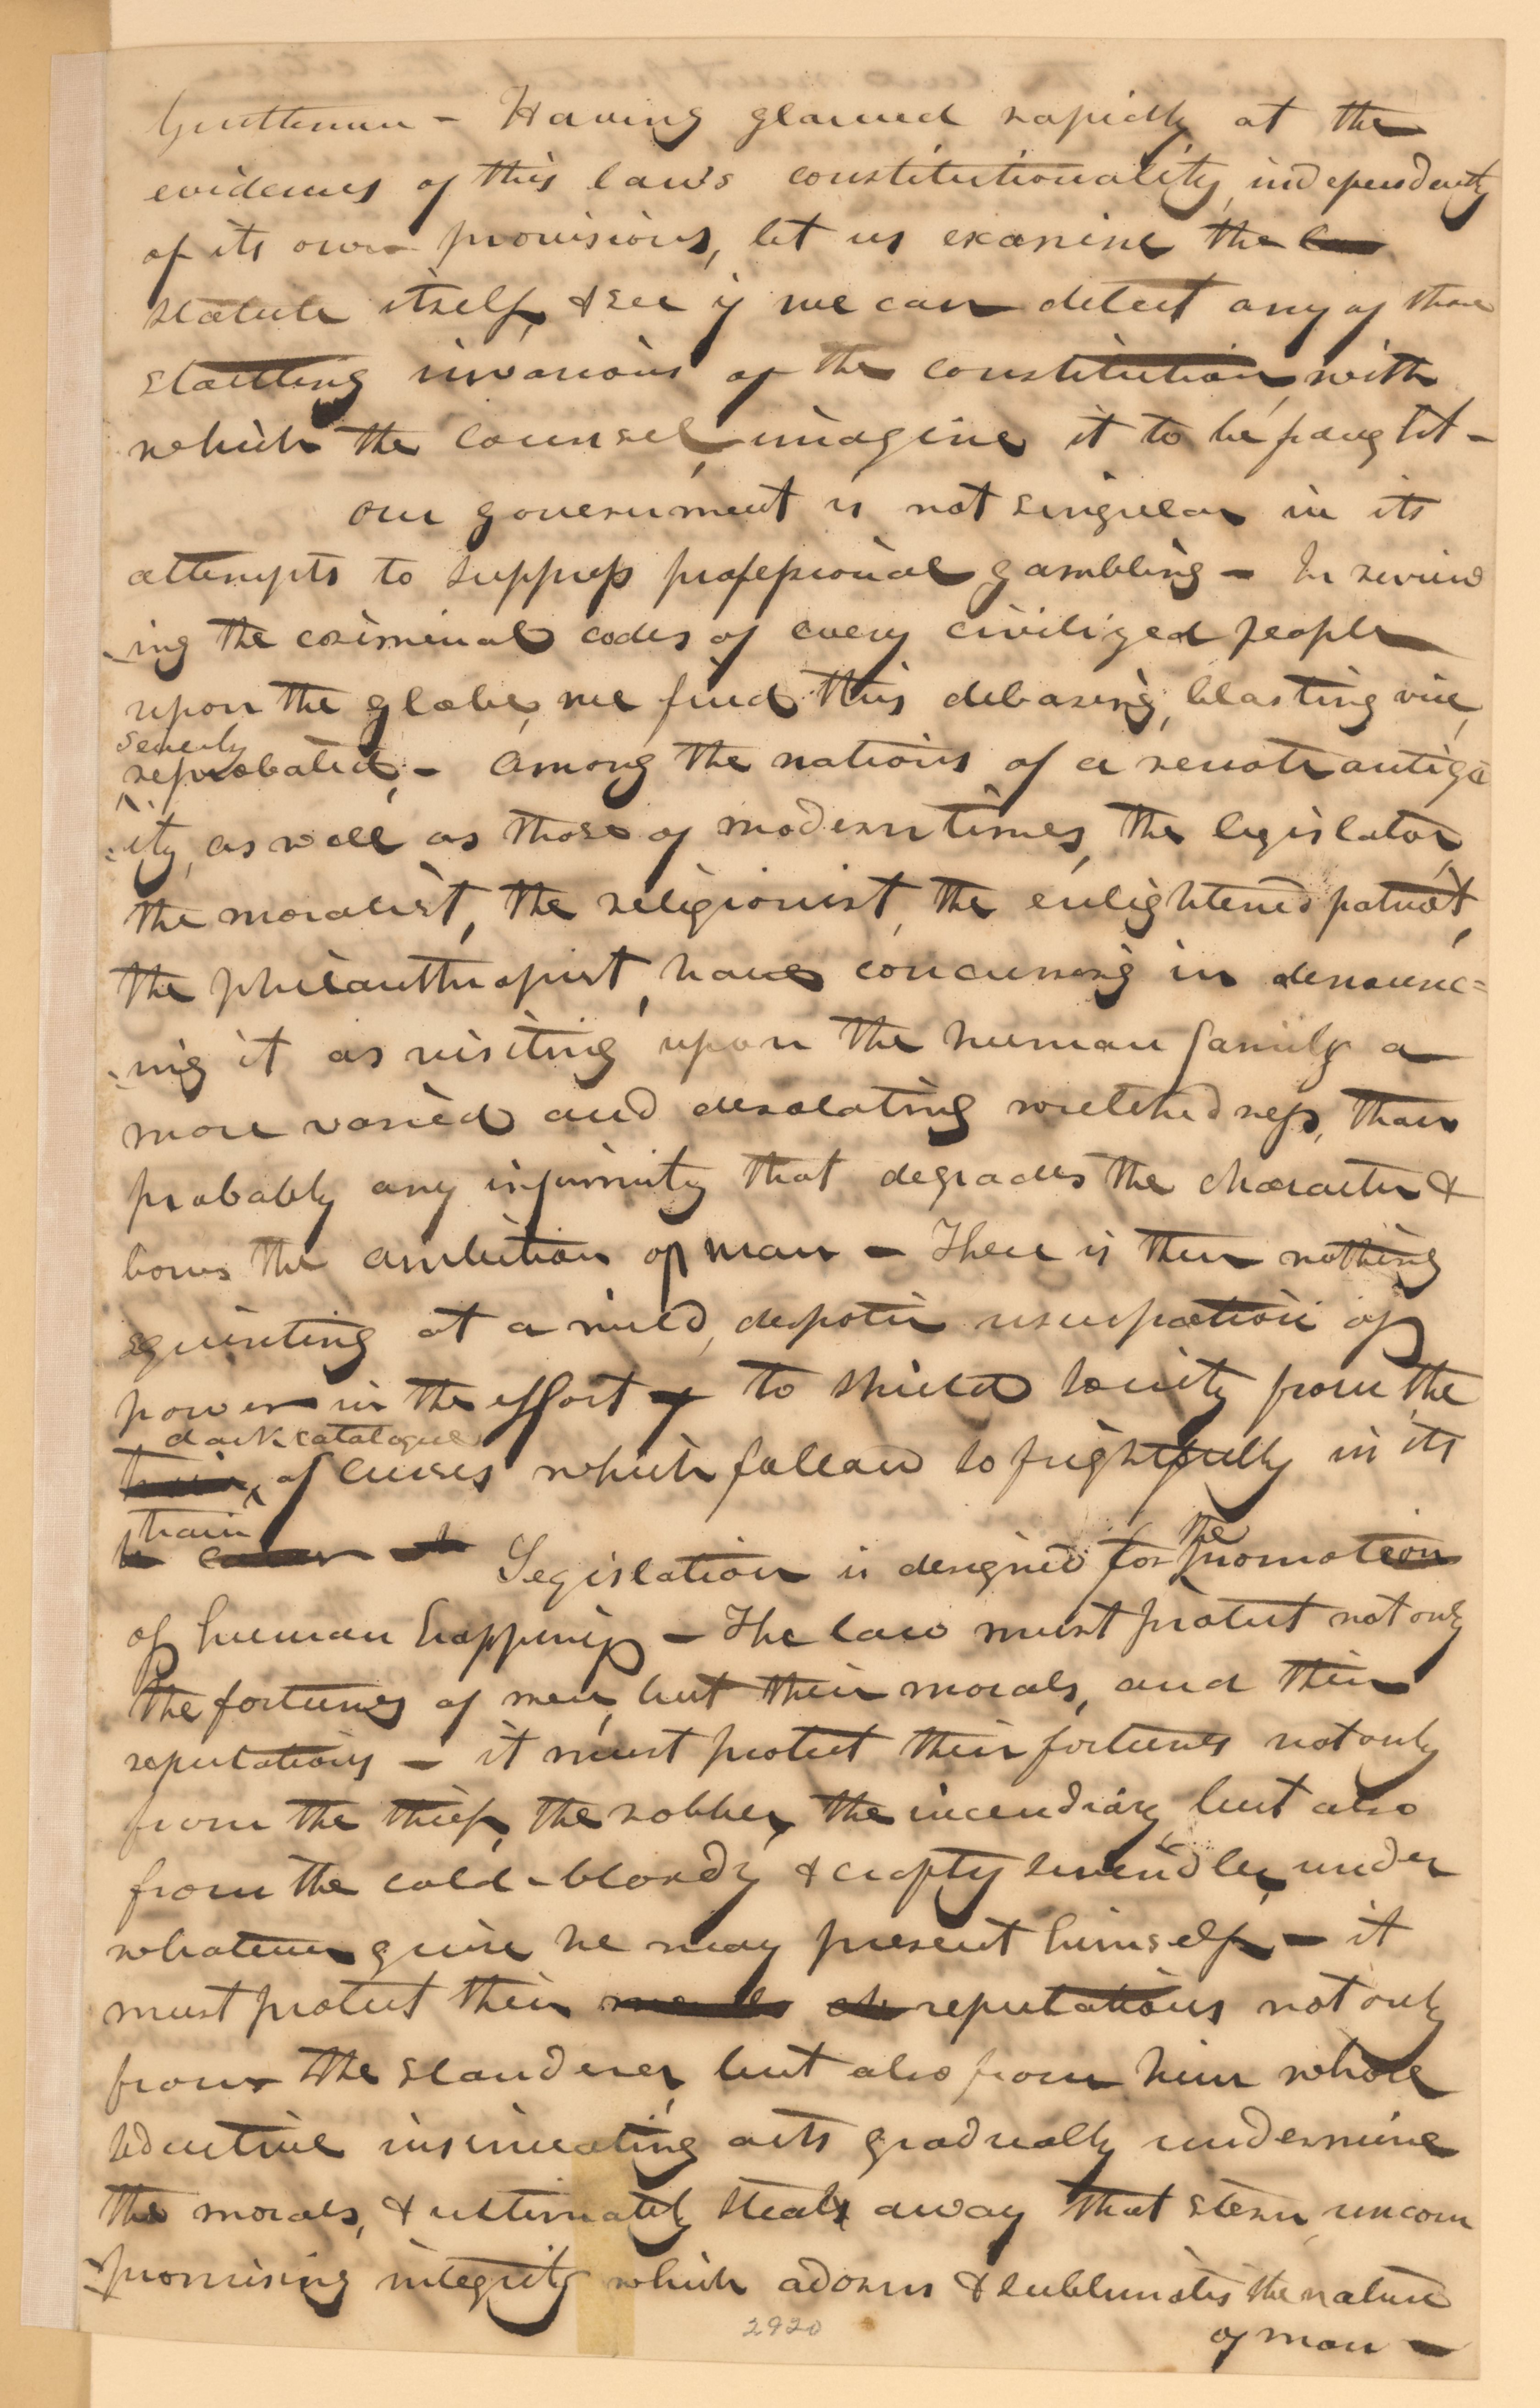 Gentlemen - Having glanced rapidly at the
evidences of this law's constitutionality, independently
of its own provisions, let us examine the
statute itself, & see if we can detect any of those
startling invasions of the constitution, with
which the counsel imagine it to be fraught -
Our government is not singular in its
attempts to suppress professional gambling - In review
-ing the criminal codes of every civilized people
upon the globe, we find this debasing, blasting vice,
severly
reprobated, - Among the nations of a remote antiqu
-ity, as well as those of modern times, the legislator,
the moralist, the religionist, the enlightened patriot,
the philanthropist, have concurring in denounc=
-ing it as visiting upon the human family a
more varied and desolating wretchedness, than
probably any infirmity that degrades the character &
bows the ambition of man - There is then nothing
squinting at a wild, despotic usurpation of
power in the effort to shield society from the
dark catalogue
train of curses which follow so frightfully in its
train
the
Legislation is designed for promotion
of human happiness - The law must protect not only
the fortunes of men, but their morals, and their
reputations - it must protect their fortunes not only
from the thief, the robber, the incendiary, but also
from the cold-bloody & crafty swindler, under
whatever guise he may present himself - it
must protect their morals reputations not only
from the slanderer, but also from him whose
seductive insinuating arts gradually undermine
the morals, & ultimately steals away that stern, uncom
-promising integrity which adorns & sublimates the nature
of man -
2920